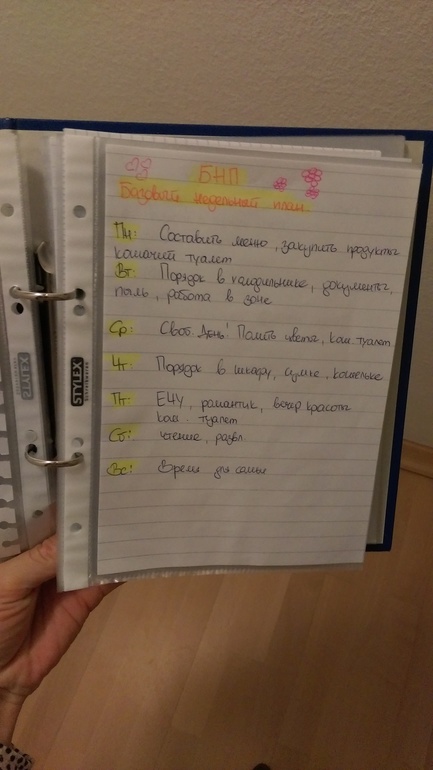 БНП
Базовый недельный план.
Пн: Составить меню, закупить продукты
кошачий туалет
Вт: Порядок в холодильнике, документы,
пыль, работа в зоне
Ср: Своб. День! Полить цветы, кош. туалет
Чт: Порядок в шкафу, сумке, кошельке
Пт: ЕЧУ, романтик, вечер красоты
кош. туалет
Сб: чтение, развл.
Вс: Время для семьи
STYLEX
STYLEX